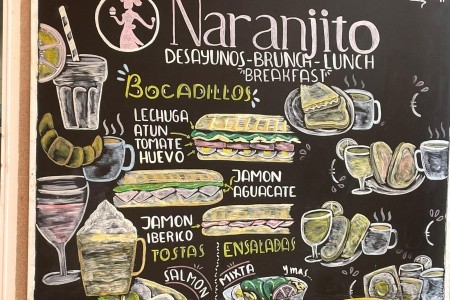 Naranjito
DESAYUNOS-BRUNCH-LUNCH
"BREAKFAST"
BOCADILLOS
LECHUGA
ATUN
TOMATE
HUEVO
JAMON
AGUACATE
JAMON
IBERICO
TOSTAS
ENSALADAS
SALMON
MIXTA
y mas